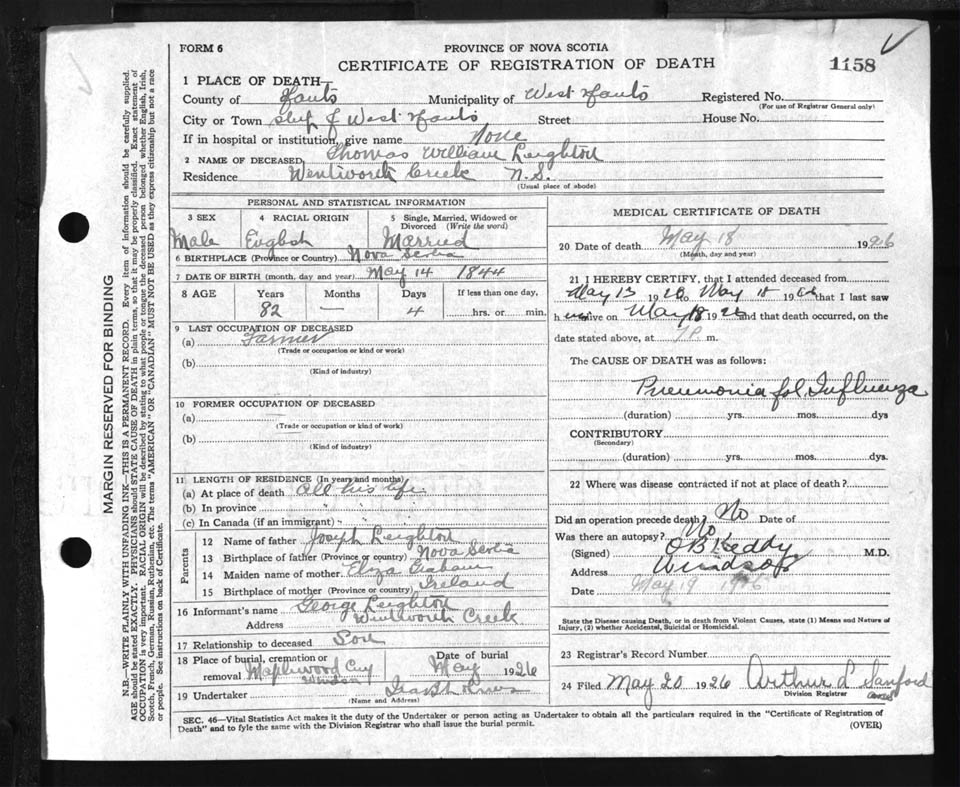 FORM 6
PROVINCE OF NOVA SCOTIA
CERTIFICATE OF REGISTRATION OF DEATH
1158
1 PLACE OF DEATH—
County of Hants Municipality of West Hants Registered No.
(For use of Registrar General only)
City or Town of West Hants Street House No.
If in hospital or institution, give name None
2 NAME OF DECEASED Thomas William Leighton
Residence Wentworth Creek N.S.
(Usual place of abode)
PERSONAL AND STATISTICAL INFORMATION
3 SEX 4 RACIAL ORIGIN 5 Single, Married, Widowed or Divorced (Write the word)
Male English Married
6 BIRTHPLACE (Province or Country) Nova Scotia
7 DATE OF BIRTH (month, day and year) May 14 1844
8 AGE Years Months Days If less than one day,
82 — 4 hrs. or min.
9 LAST OCCUPATION OF DECEASED
(a) Farmer
(Trade or occupation or kind or work)
(b)
(Kind of industry)
10 FORMER OCCUPATION OF DECEASED
(a)
(Trade or occupation or kind or work)
(b)
(Kind of industry)
11 LENGTH OF RESIDENCE (In years and months)
(a) At place of death All his life
(b) In province " "
(c) In Canada (if an immigrant) "
Parents
12 Name of father Joseph Leighton
13 Birthplace of father (Province or country) Nova Scotia
14 Maiden name of mother Eliza Graham
15 Birthplace of mother (Province or country) Ireland
16 Informant's name George Leighton
Address Wentworth Creek
17 Relationship to deceased Son
18 Place of burial, cremation or removal Maplewood Cmy Windsor Date of burial May 1926
19 Undertaker
(Name and Address)
MEDICAL CERTIFICATE OF DEATH
20 Date of death May 18 1926
(Month, day and year)
21 I HEREBY CERTIFY, that I attended deceased from
May 13 1926 to May 18 1926 that I last saw
h im alive on May 18 1926 and that death occurred, on
date stated above, at 7 P. m.
The CAUSE OF DEATH was as follows:
Pneumonia fol. Influenza
(duration) yrs. mos. dys
CONTRIBUTORY
(Secondary)
(duration) yrs. mos. dys.
22 Where was disease contracted if not at place of death?
Did an operation precede death? No Date of
Was there an autopsy? No
(Signed) O B Keddy M.D.
Address Windsor
Date May 19 1926
State the Disease causing Death, or in death from Violent Causes, state (1) Means and Nature of
Injury, (2) whether Accidental, Suicidal or Homicidal.
23 Registrar's Record Number
24 Filed May 20 1926 Arthur L Sanford
Division Registrar
SEC. 46—Vital Statistics Act makes it the duty of the Undertaker or person acting as Undertaker to obtain all the particulars required in the "Certificate of Registration of
Death" and to fyle the same with the Division Registrar who shall issue the burial permit.
(OVER)
MARGIN RESERVED FOR BINDING
N.B.—WRITE PLAINLY WITH UNFADING INK—THIS IS A PERMANENT RECORD. Every item of information should be carefully supplied.
AGE should be stated EXACTLY. PHYSICIANS should STATE CAUSE OF DEATH in plain terms, so that it may be properly classified. Exact statement of
OCCUPATION is very important. RACIAL ORIGIN will be described by stating to what people or tongue the deceased person belonged whether English, Irish,
Scotch, French, German, Russian, Ruthenian, etc. The terms "AMERICAN" OR "CANADIAN" MUST NOT BE USED as they express citizenship but not a race
or people. See instructions on back of Certificate.